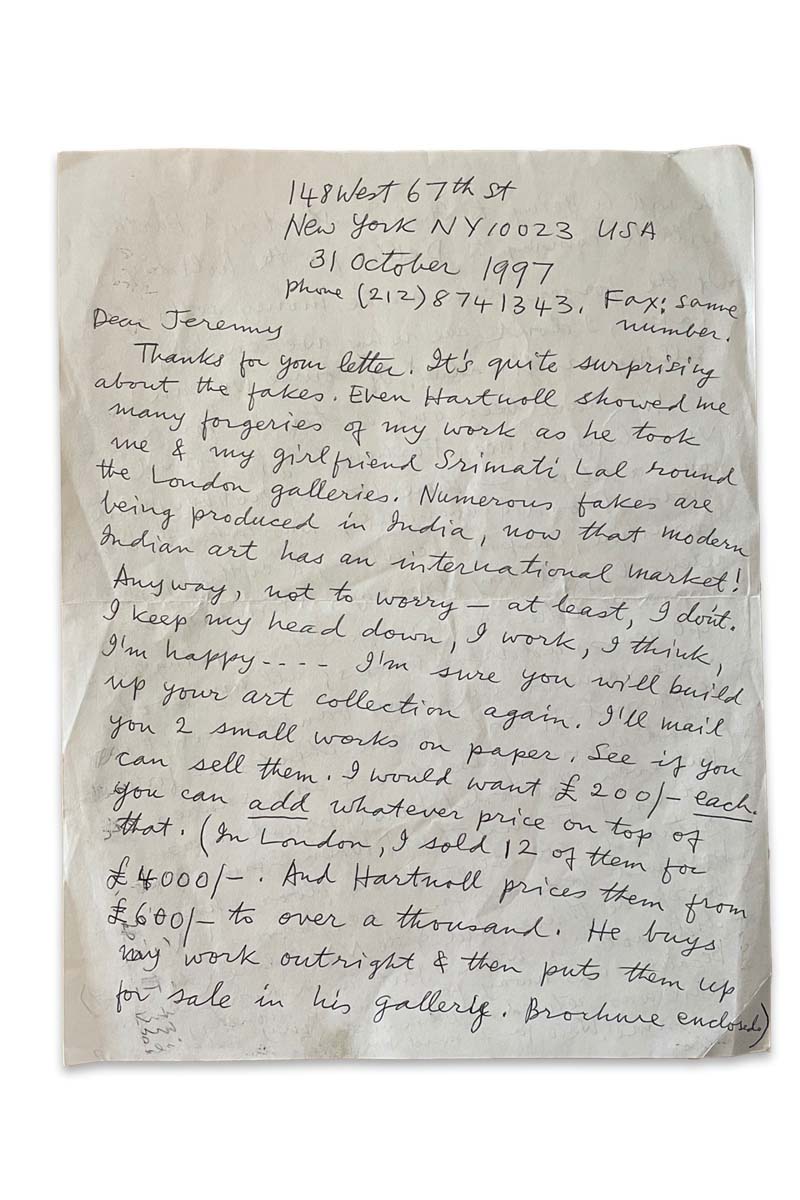 148 West 67th St
New York NY 10023 USA
31 October 1997
phone (212) 8741343. Fax: same
number.
Dear Jeremy
Thanks for your letter. It's quite surprising
about the fakes. Even Hartnoll showed me
many forgeries of my work as he took
me & my girlfriend Srimati Lal round
the London galleries. Numerous fakes are
being produced in India, now that modern
Indian art has an international market!
Anyway, not to worry — at least, I don't.
I keep my head down, I work, I think,
I'm happy ---- I'm sure you will build
up your art collection again. I'll mail
you 2 small works on paper. See if you
can sell them. I would want £200/- each.
You can add whatever price on top of
that. (In London, I sold 12 of them for
£4000/-. And Hartnoll prices them from
£600/- to over a thousand. He buys
my work outright & then puts them up
for sale in his gallery. Brochure enclosed)